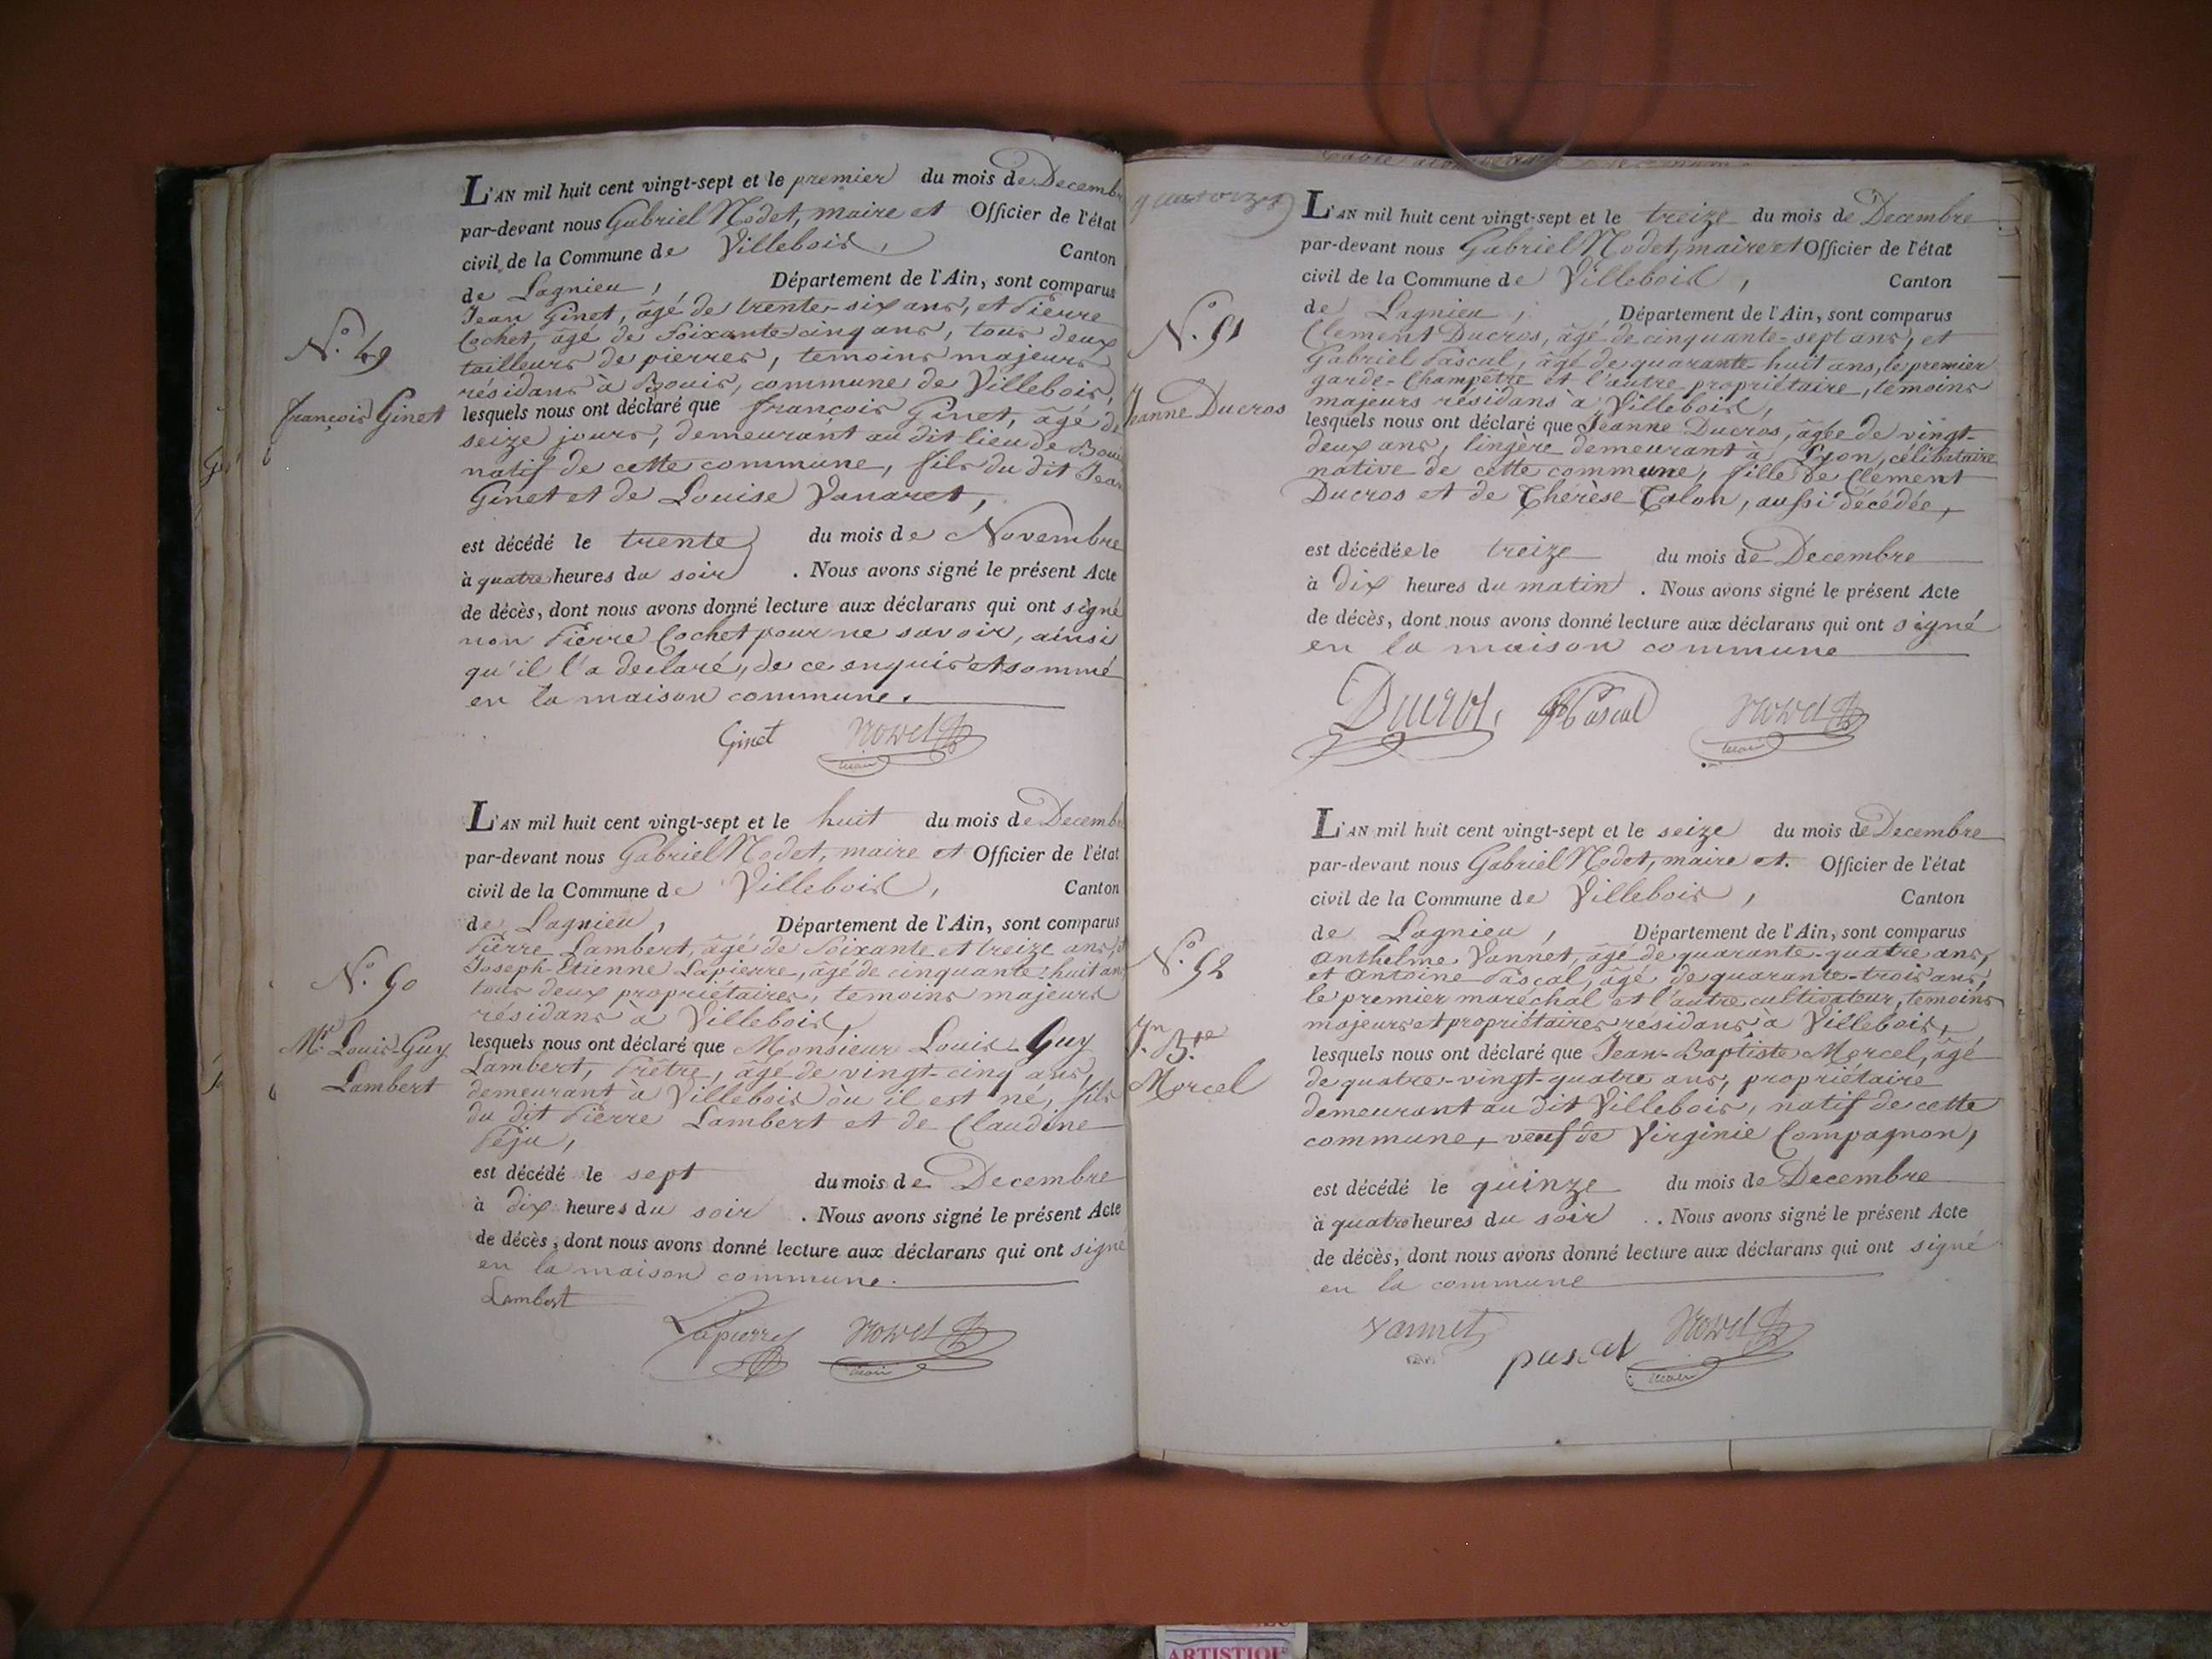 L'AN mil huit cent vingt-sept et le premier du mois de Decembre
par-devant nous Gabriel Nodet, maire et Officier de l'état
civil de la Commune de Villebois, Canton
de Lagnieu, Département de l'Ain, sont comparus
Jean Ginet, âgé de trente-six ans, et Pierre
Cochet, âgé de soixante-cinq ans, tous deux
tailleurs de pierres, temoins majeurs
résidans à Bouis, commune de Villebois,
N.o 49
François Ginet
lesquels nous ont déclaré que françois Ginet, âgé de
seize jours, demeurant au dit lieu de Bouis
natif de cette commune, fils du dit Jean
Ginet et de Louise Vanaret,
est décédé le trente du mois de Novembre
à quatre heures du soir. Nous avons signé le présent Acte
de décès, dont nous avons donné lecture aux déclarans qui ont signé
non Pierre Cochet pour ne savoir, ainsi
qu'il l'a declaré, de ce enquis et sommé
en la maison commune.
Ginet
maire
L'AN mil huit cent vingt-sept et le huit du mois de Decembre
par-devant nous Gabriel Nodet, maire et Officier de l'état
civil de la Commune de Villebois, Canton
de Lagnieu, Département de l'Ain, sont comparus
Pierre Lambert, âgé de soixante et treize ans, et
Joseph-Etienne Lapierre, âgé de cinquante-huit ans
tous deux propriétaires, temoins majeurs
résidans à Villebois,
N.o 50
Mr. Louis-Guy
Lambert
lesquels nous ont déclaré que Monsieur Louis-Guy
Lambert, Prêtre, âgé de vingt-cinq ans,
demeurant à Villebois où il est né, fils
du dit Pierre Lambert et de Claudine
Péju,
est décédé le sept du mois de Decembre
à dix heures du soir. Nous avons signé le présent Acte
de décès, dont nous avons donné lecture aux déclarans qui ont signé
en la maison commune.
Lambert
Lapierre
maire
quatorze
L'AN mil huit cent vingt-sept et le treize du mois de Decembre
par-devant nous Gabriel Nodet, maire et Officier de l'état
civil de la Commune de Villebois, Canton
de Lagnieu, Département de l'Ain, sont comparus
Clement Ducros, âgé de cinquante-sept ans, et
Gabriel Pascal, âgé de quarante huit ans, le premier
garde-Champêtre et l'autre propriétaire, temoins
majeurs résidans à Villebois,
N.o 51
Jeanne Ducros
lesquels nous ont déclaré que Jeanne Ducros, âgée de vingt-
deux ans, lingère demeurant à Lyon, célibataire
native de cette commune, fille de Clement
Ducros et de Thérèse Calon, aussi décédée,
est décédée le treize du mois de Decembre
à dix heures du matin. Nous avons signé le présent Acte
de décès, dont nous avons donné lecture aux déclarans qui ont signé
en la maison commune
Ducros. Pascal
maire
L'AN mil huit cent vingt-sept et le seize du mois de Decembre
par-devant nous Gabriel Nodet, maire et. Officier de l'état
civil de la Commune de Villebois, Canton
de Lagnieu, Département de l'Ain, sont comparus
Anthelme Vannet, âgé de quarante-quatre ans,
et Antoine Pascal, âgé de quarante-trois ans,
le premier maréchal et l'autre cultivateur, temoins
majeurs et propriétaires résidans à Villebois,
N.o 52
Jn. Bte.
Morcel
lesquels nous ont déclaré que Jean-Baptiste Morcel, âgé
de quatre-vingt-quatre ans, propriétaire
demeurant au dit Villebois, natif de cette
commune, veuf de Virginie Compagnon,
est décédé le quinze du mois de Decembre
à quatre heures du soir. Nous avons signé le présent Acte
de décès, dont nous avons donné lecture aux déclarans qui ont signé
en la commune
Vannet
pascal
maire
ARTISTIQUE